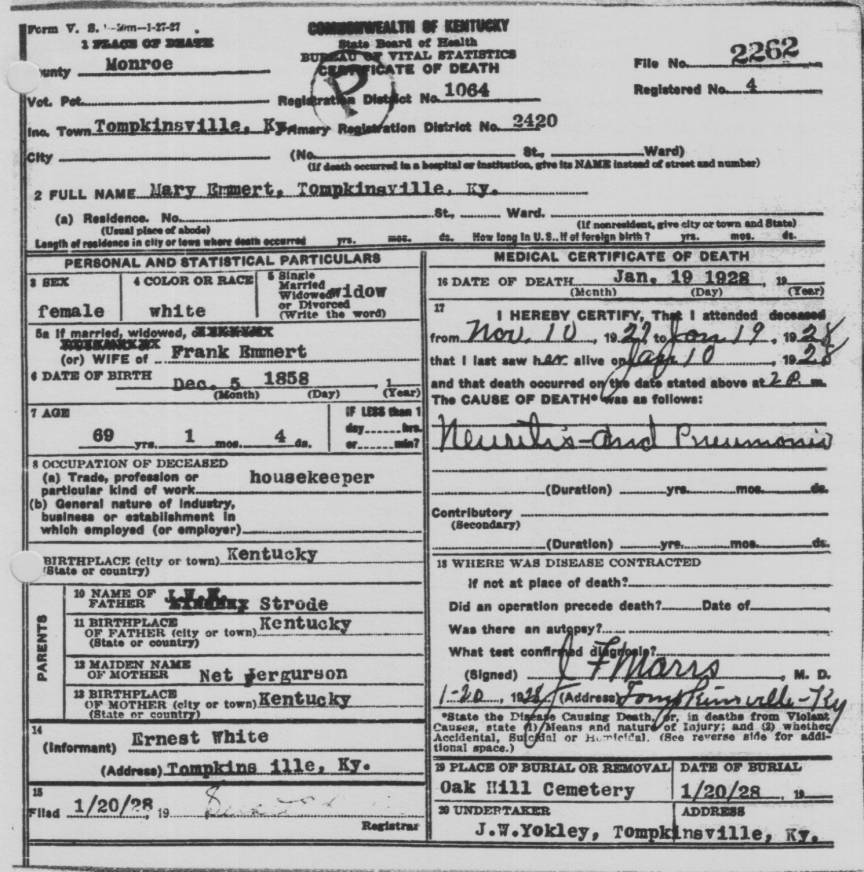 Form V. S. 1-50m-1-27-27
COMMONWEALTH OF KENTUCKY
State Board of Health
BUREAU OF VITAL STATISTICS
CERTIFICATE OF DEATH
1 PLACE OF DEATH
County Monroe
File No. 2262
Registered No. 4
Vot. Pct.
Registration District No. 1064
Inc. Town Tompkinsville, Ky.
Primary Registration District No. 2420
P
City
(No. St., Ward)
(If death occurred in a hospital or institution, give its NAME instead of street and number)
2 FULL NAME Mary Emmert, Tompkinsville, Ky.
(a) Residence. No. St., Ward.
(Usual place of abode) (If nonresident, give city or town and State)
Length of residence in city or town where death occurred yrs. mos. ds. How long in U. S., if of foreign birth? yrs. mos. ds.
PERSONAL AND STATISTICAL PARTICULARS
3 SEX
female
4 COLOR OR RACE
white
5 Single
Married
Widowed widow
or Divorced
(Write the word)
5a If married, widowed,
(or) WIFE of Frank Emmert
6 DATE OF BIRTH Dec. 5 1858 , 1
(Month) (Day) (Year)
7 AGE
69 yrs. 1 mos. 4 ds.
IF LESS than 1
day hrs.
or min?
8 OCCUPATION OF DECEASED
(a) Trade, profession or
particular kind of work housekeeper
(b) General nature of industry,
business or establishment in
which employed (or employer)
BIRTHPLACE (city or town) Kentucky
(State or country)
PARENTS
10 NAME OF
FATHER Strode
11 BIRTHPLACE
OF FATHER (city or town) Kentucky
(State or country)
12 MAIDEN NAME
OF MOTHER Net Jergurson
13 BIRTHPLACE
OF MOTHER (city or town) Kentucky
(State or country)
14
(Informant) Ernest White
(Address) Tompkins ille, Ky.
15
Filed 1/20/28 , 19
Registrar
MEDICAL CERTIFICATE OF DEATH
16 DATE OF DEATH Jan. 19 1928 , 19
(Month) (Day) (Year)
17
I HEREBY CERTIFY, That I attended deceased
from Nov. 10 , 1927 to Jan 19 , 1928
that I last saw her alive on Jan 10 , 1928
and that death occurred on the date stated above at 2 P m.
The CAUSE OF DEATH* was as follows:
Neuritis - and Pneumonia
(Duration) yrs. mos. ds.
Contributory
(Secondary)
(Duration) yrs. mos. ds.
18 WHERE WAS DISEASE CONTRACTED
if not at place of death?
Did an operation precede death? Date of
Was there an autopsy?
What test confirmed diagnosis?
(Signed) J F Marrs , M. D.
1-20 , 1928 (Address) Tompkinsville - Ky
*State the Disease Causing Death, or, in deaths from Violent
Causes, state (1) Means and nature of Injury; and (2) whether
Accidental, Suicidal or Homicidal. (See reverse side for addi-
tional space.)
19 PLACE OF BURIAL OR REMOVAL
Oak Hill Cemetery
DATE OF BURIAL
1/20/28 , 19
20 UNDERTAKER
ADDRESS
J.W.Yokley, Tompkinsville, Ky.